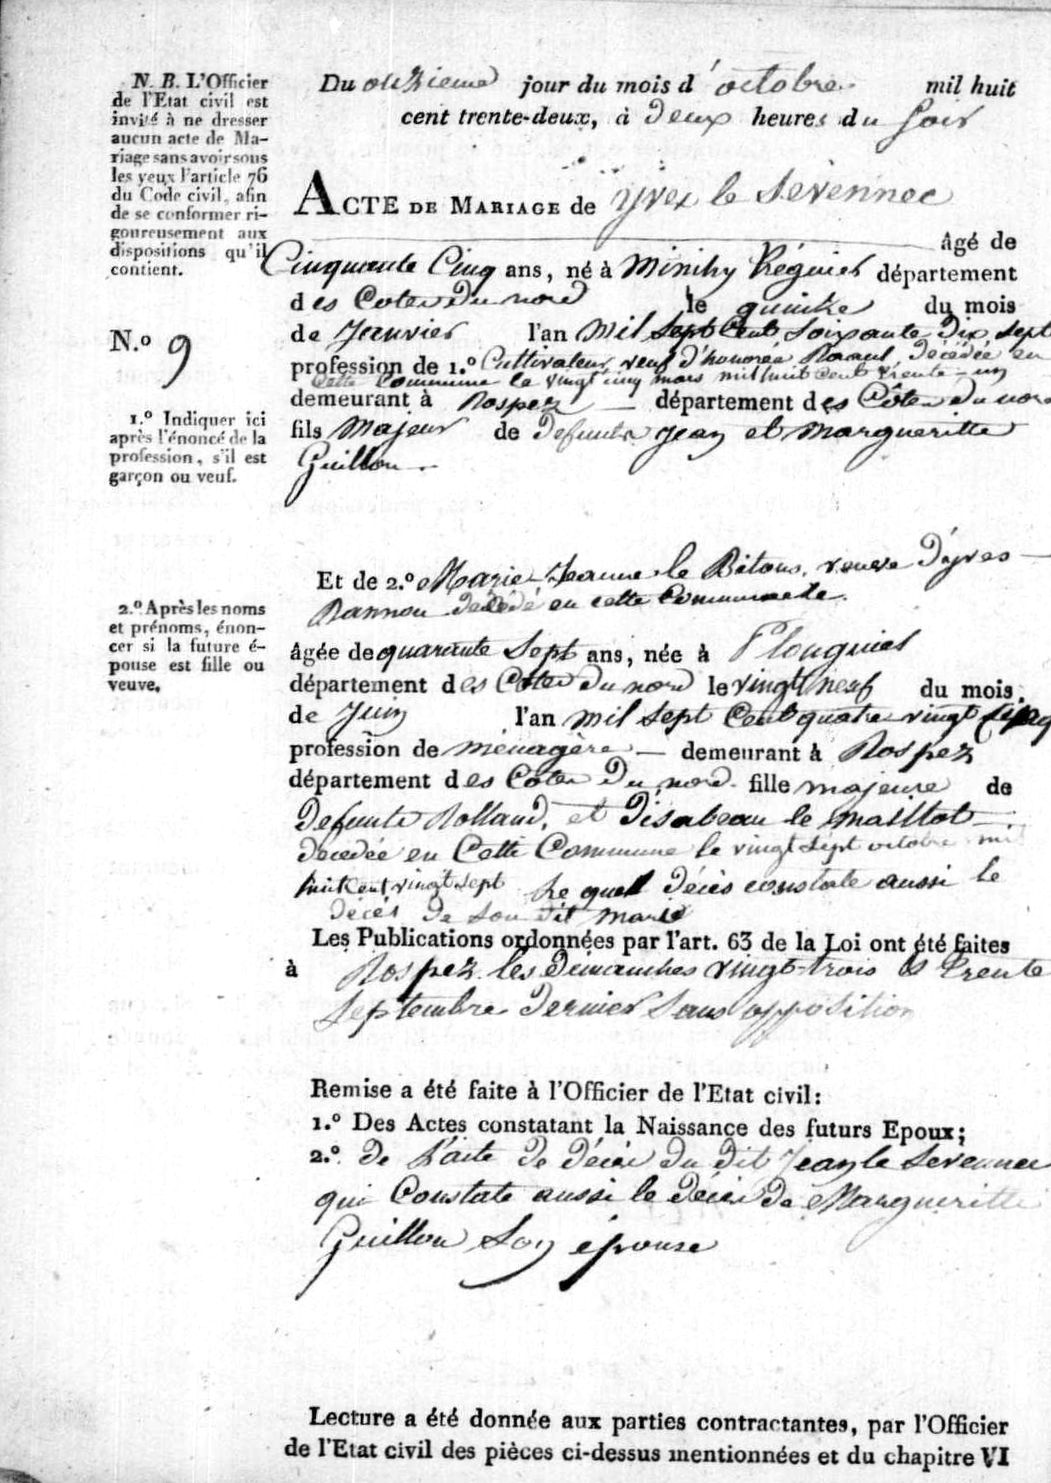 N. B. L'Officier
de l'Etat civil est
invité à ne dresser
aucun acte de Ma-
riage sans avoir sous
les yeux l'article 76
du Code civil, afin
de se conformer ri-
goureusement aux
dispositions qu'il
contient.
N.o 9
1.o Indiquer ici
après l'énoncé de la
profession, s'il est
garçon ou veuf.
2.o Après les noms
et prénoms, énon-
cer si la future é-
pouse est fille ou
veuve.
Du onzieme jour du mois d'octobre mil huit
cent trente-deux, à deux heures du soir
ACTE DE MARIAGE de yves le Sevennec
âgé de
Cinquante Cinq ans, né à Minihy Tréguier département
des Cotes du nord le quinze du mois
de Janvier l'an Mil Sept Cent Soixante Dix sept
profession de 1.o Cultivateur, veuf d'honorée Raoul, décédée en
cette commune le vingt cinq mars mil huit cent trente-un
demeurant à Rospez département des Côtes du nord
fils Majeur de defunts jean et Margueritte
Guillou
Et de 2.o Marie-Jeanne le Bitous, veuve d'yves
Rannou décédé en cette Commune
âgée de quarante Sept ans, née à Plouguiel
département des Cotes du nord le vingt neuf du mois
de Juin l'an Mil Sept Cent quatre vingt Cinq
profession de ménagère demeurant à Rospez
département des Cotes du nord fille majeure de
defunts Rolland, et disabeau le maillot
décédée en Cette Commune le vingt sept octobre mil
huit Cent vingt sept Le quel décès constate aussi le
décès de son dit mari
Les Publications ordonnées par l'art. 63 de la Loi ont été faites
à Rospez les dimanches vingt-trois et trente
Septembre dernier Sans opposition
Remise a été faite à l'Officier de l'Etat civil:
1.o Des Actes constatant la Naissance des futurs Epoux;
2.o de l'acte de décès du dit Jean le Sevennec
qui Constate aussi le décès de Margueritte
Guillou Son épouse
Lecture a été donnée aux parties contractantes, par l'Officier
de l'Etat civil des pièces ci-dessus mentionnées et du chapitre VI